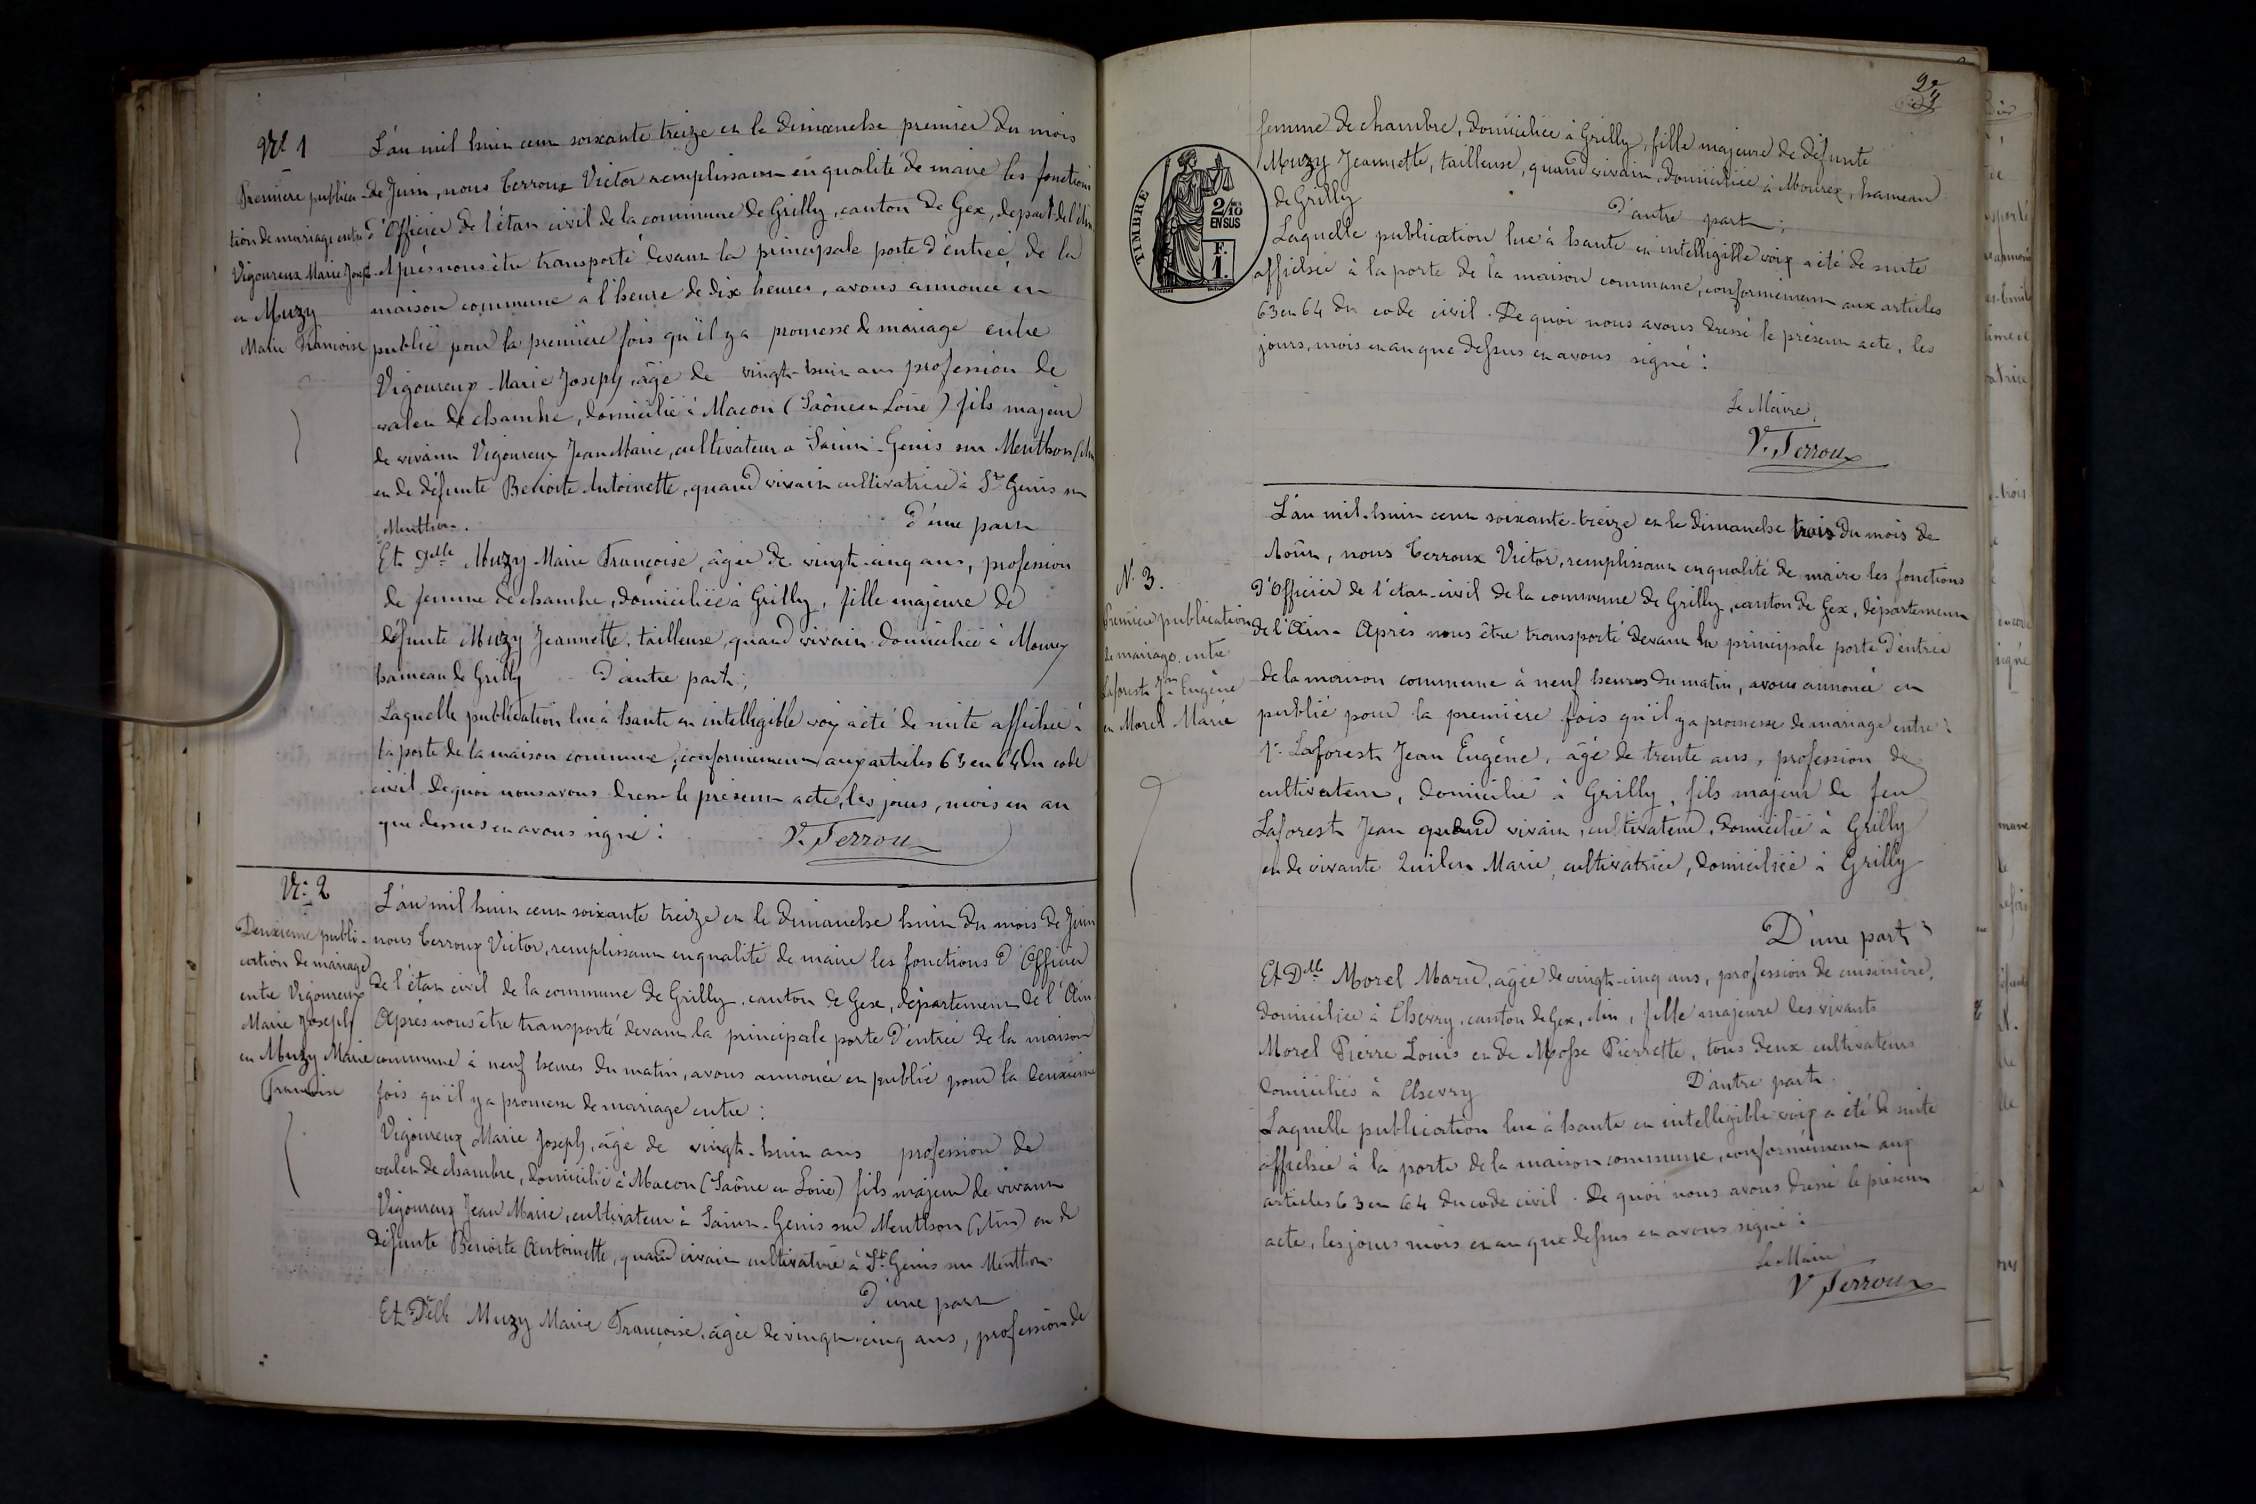 Nº 1
Première publica-
tion de mariage entre
Vigoureux Marie Joseph
et Muzy
Marie Françoise
L'an mil huit cent soixante treize et le dimanche premier du mois
de Juin, nous Terroux Victor remplissant en qualité de maire les fonctions
d'Officier de l'état civil de la commune de Grilly, canton de Gex, départ. de l'Ain
Après nous être transporté devant la principale porte d'entrée de la
maison commune à l'heure de dix heures, avons annoncé et
publié pour la première fois qu'il y a promesse de mariage entre
Vigoureux Marie Joseph, âgé de vingt-huit ans profession de
valet de chambre, domicilié à Macon (Saône et Loire) fils majeur
de vivant Vigoureux Jean Marie, cultivateur à Saint-Genis sur Menthon (Ain
et de défunte Benoite Antoinette, quand vivait cultivatrice à St Genis sur
Menthon. d'une part
Et Delle Muzy Marie Françoise, âgée de vingt-cinq ans, profession
de femme de chambre, domiciliée à Grilly, fille majeure de
défunte Muzy Jeannette, tailleuse, quand vivait domiciliée à Mourex
hameau de Grilly d'autre part;
Laquelle publication lue à haute et intelligible voix a été de suite affichée à
la porte de la maison commune, conformément aux articles 63 et 64 du code
civil. De quoi nous avons dressé le présent acte, les jours, mois et an
que dessus et avons signé :
V. Terroux
Nº 2
Deuxième publi-
cation de mariage
entre Vigoureux
Marie Joseph
et Muzy Marie
Françoise
L'an mil huit cent soixante treize et le dimanche huit du mois de Juin
nous Terroux Victor, remplissant en qualité de maire les fonctions d'Officier
de l'état civil de la commune de Grilly, canton de Gex, département de l'Ain
Après nous être transporté devant la principale porte d'entrée de la maison
commune à neuf heures du matin, avons annoncé et publié pour la deuxième
fois qu'il y a promesse de mariage entre :
Vigoureux Marie Joseph, âgé de vingt-huit ans profession de
valet de chambre, domicilié à Macon (Saône et Loire) fils majeur de vivant
Vigoureux Jean Marie, cultivateur à Saint-Genis sur Menthon (Ain) et de
défunte Benoite Antoinette, quand vivait cultivatrice à St Genis sur Menthon
d'une part
Et Delle Muzy Marie Françoise, âgée de vingt-cinq ans, profession de
TIMBRE
2/10
EN SUS
F.
1.
femme de chambre, domiciliée à Grilly, fille majeure de défunte
Muzy Jeannette, tailleuse, quand vivait domiciliée à Mourex, hameau
de Grilly d'autre part;
Laquelle publication lue à haute et intelligible voix a été de suite
affichée à la porte de la maison commune, conformément aux articles
63 et 64 du code civil. De quoi nous avons dressé le présent acte, les
jours, mois et an que dessus et avons signé :
Le Maire,
V. Terroux
N. 3.
Première publication
de mariage entre
Laforest Jn Eugène
et Morel Marie
L'an mil-huit cent soixante-treize et le dimanche trois du mois de
Août, nous Terroux Victor, remplissant en qualité de maire les fonctions
d'Officier de l'état-civil de la commune de Grilly, canton de Gex, département
de l'Ain. Après nous être transporté devant la principale porte d'entrée
de la maison commune à neuf heures du matin, avons annoncé et
publié pour la première fois qu'il y a promesse de mariage entre :
1º Laforest Jean Eugène, âgé de trente ans, profession de
cultivateur, domicilié à Grilly, fils majeur de feu
Laforest Jean quand vivait, cultivateur, domicilié à Grilly
et de vivante Marie, cultivatrice, domiciliée à Grilly
D'une part
Et Delle Morel Marie, âgée de vingt-cinq ans, profession de cuisinière,
domiciliée à Chevry, canton de Gex, Ain, fille majeure des vivants
Morel Pierre Louis et de Mosse Pierrette, tous deux cultivateurs
domiciliés à Chevry D'autre part.
Laquelle publication lue à haute et intelligible voix a été de suite
affichée à la porte de la maison commune, conformément aux
articles 63 et 64 du code civil. De quoi nous avons dressé le présent
acte, les jours mois et an que dessus et avons signé :
Le Maire
V Terroux